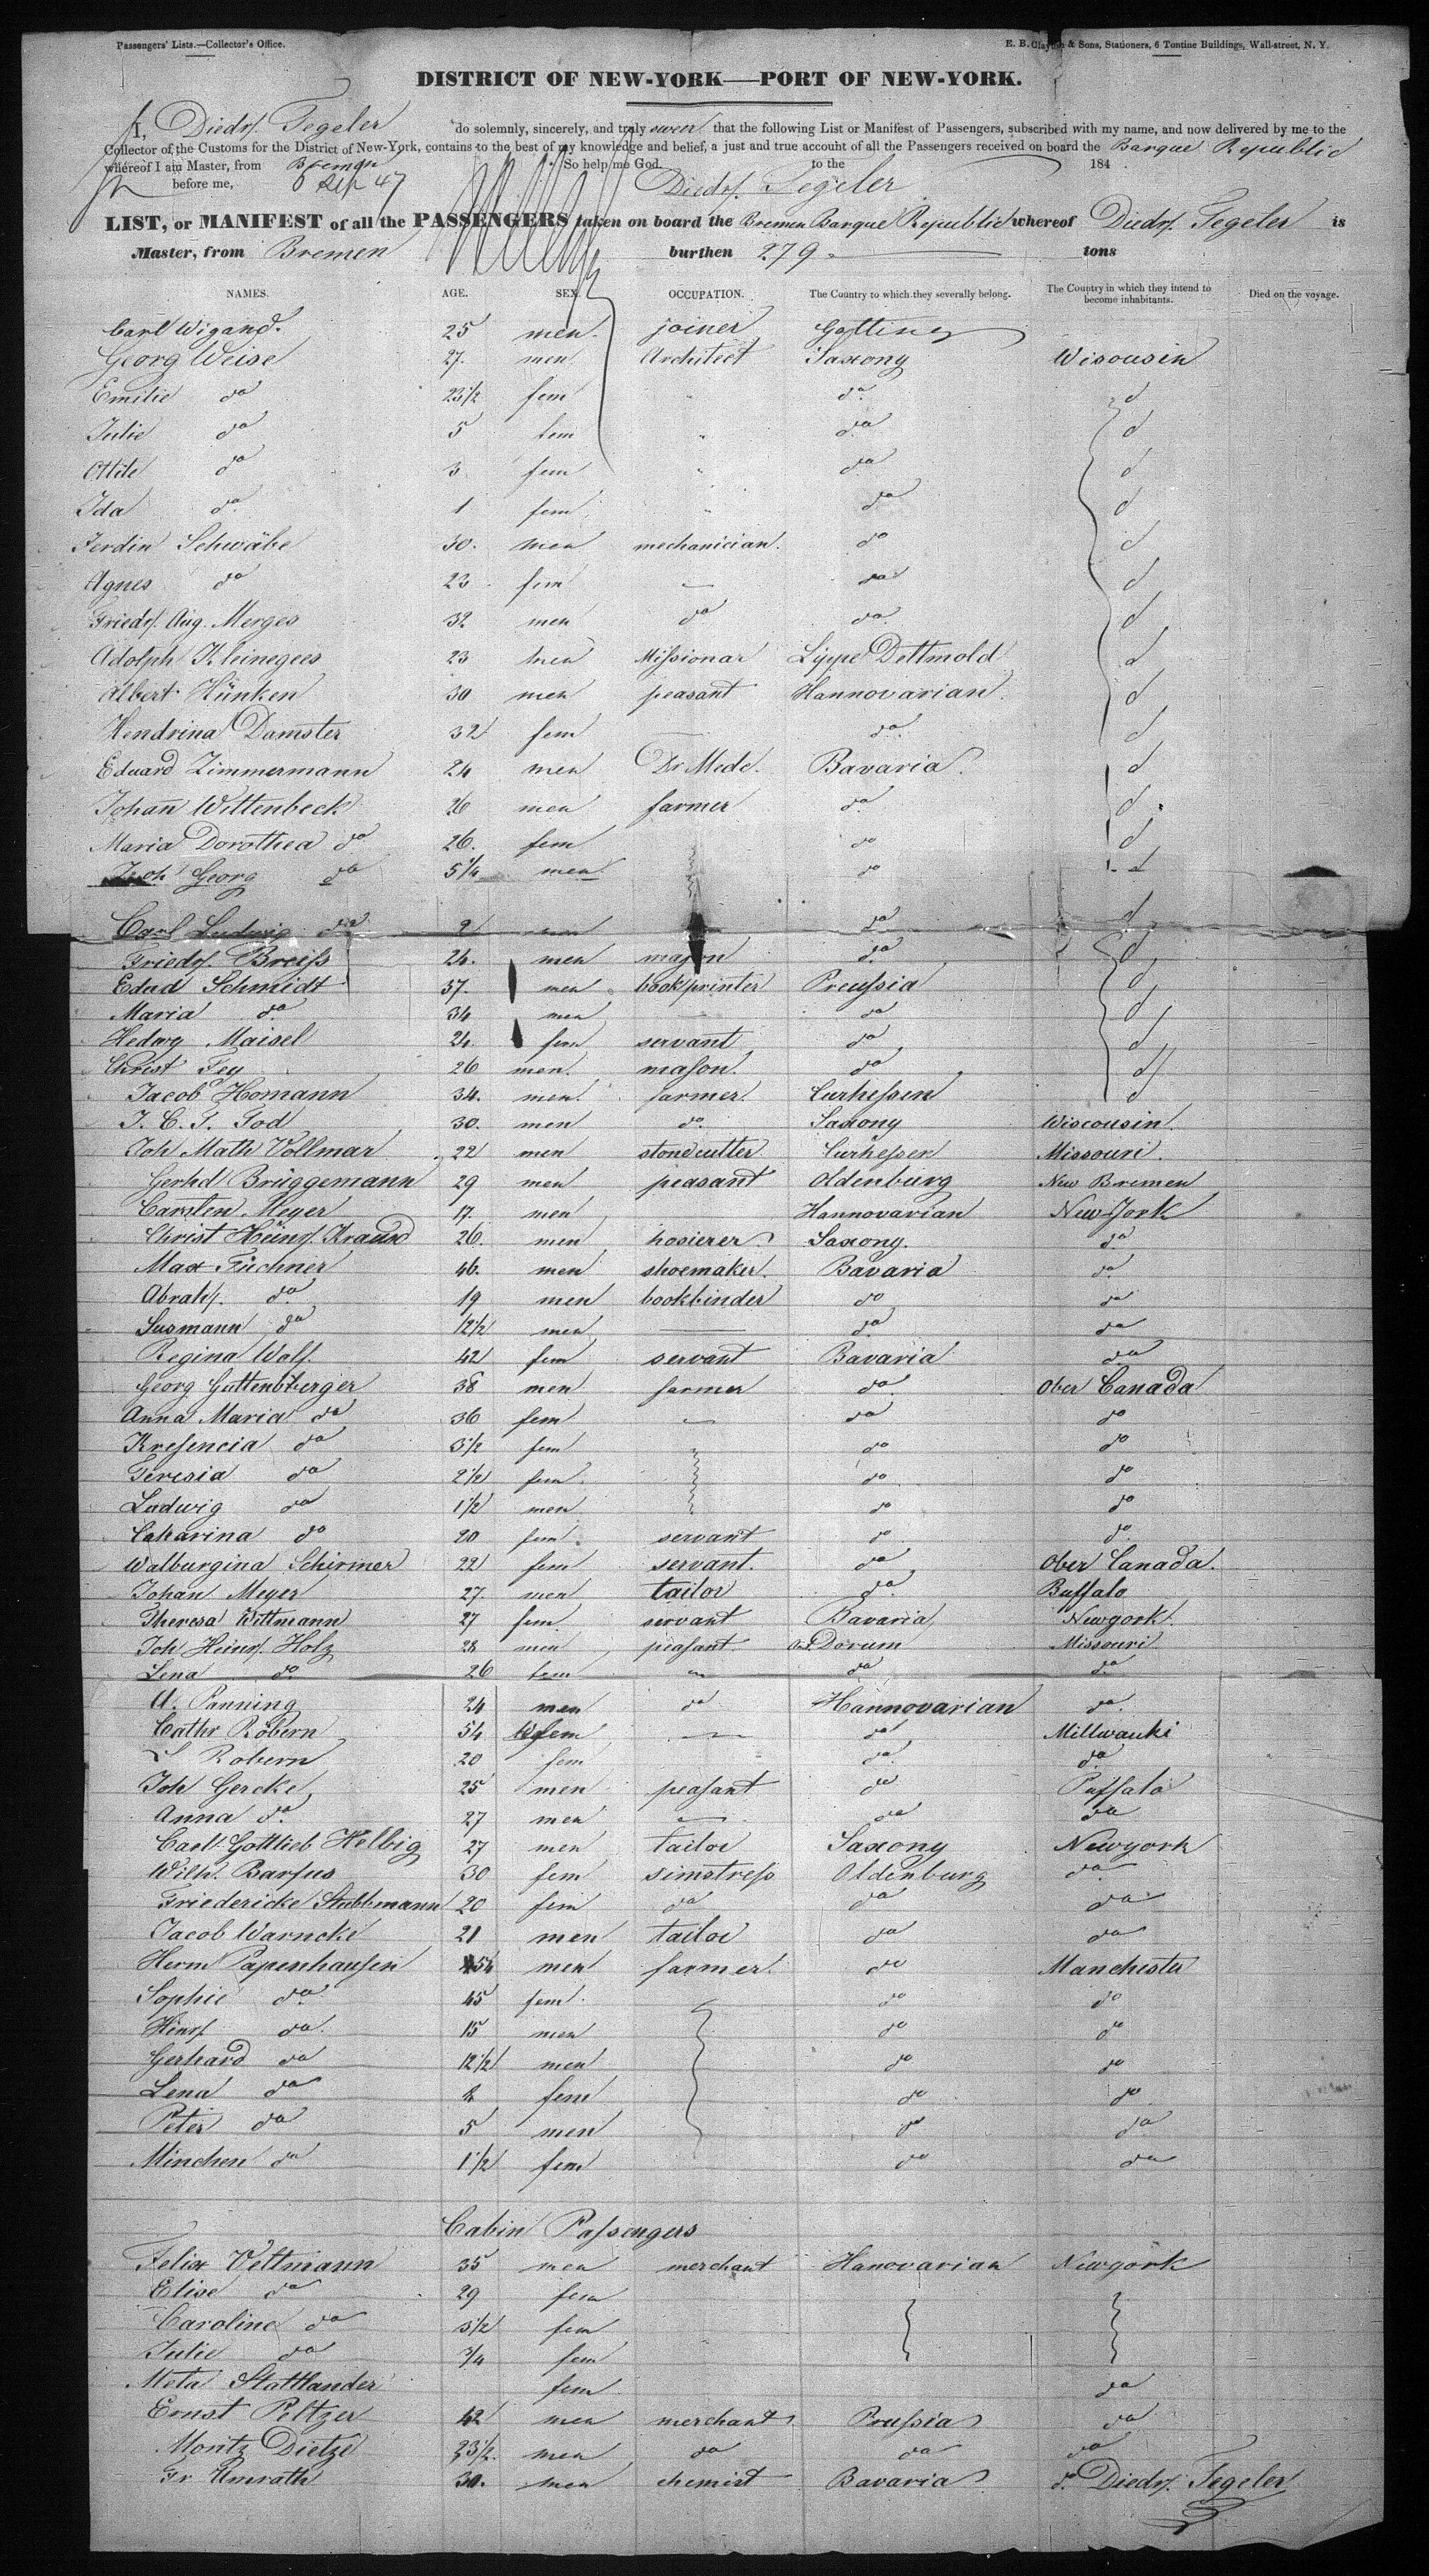 Passengers' Lists.—Collector's Office. E. B. Clayton & Sons, Stationers, 6 Tontine Buildings, Wall-street, N. Y.
DISTRICT OF NEW-YORK—PORT OF NEW-YORK.
I, Diedr. Tegeler do solemnly, sincerely, and truly swear that the following List or Manifest of Passengers, subscribed with my name, and now delivered by me to the
Collector of the Customs for the District of New-York, contains to the best of my knowledge and belief, a just and true account of all the Passengers received on board the Barque Republic
whereof I am Master, from Bremen So help me God. to the 184 .
before me, 6 Sep 47 Diedr. Tegeler
LIST, or MANIFEST of all the PASSENGERS taken on board the Bremen Barque Republic whereof Diedr. Tegeler is
Master, from Bremen burthen 279 tons
NAMES. AGE. SEX. OCCUPATION. The Country to which they severally belong. The Country in which they intend to become inhabitants. Died on the voyage.
Carl Wigand. 25 men. joiner
Georg Weise 27. men Architect Saxony Wisousin
Emilie do 23½ fem do d
Julie do 5 fem do d
Ottile do 3 fem do d
Ida do 1 fem do d
Ferdin Schwäbe 30. men mechanician. do d
Agnes do 23 fem — do d
Friedr. Aug. Merges 32 men do do d
Adolph Kleinegees 23 men Missionar Lippe Dettmold d
Albert Hünken 30 men peasant Hannovarian d
Hendrina Damster 32 fem — do d
Eduard Zimmermann 24 men Dr Mede. Bavaria. d
Johan Wittenbeck 26 men farmer do d
Maria Dorothea do 26. fem do d
Joh Georg do 5¼ men do d
Carl Ludwig do 2 men do d
Friedr. Breiss 24. men mason do d
Edud Schmidt 37. men bookprinter Preussia d
Maria do 34 men — do d
Hedwg Maisel 24. fem servant do d
Christ Fey 26 men. mason. do d
Jacob Homann 34. men. farmer. Curhessen d
J. C. T. Tod 30. men do. Saxony Wiscousin.
Joh Math Vollmar 22 men stonecutter Curhessen Missouri.
Gerhd Brüggemann 29 men peasant Oldenburg New Bremen
Carsten Meyer 17. men Hannovarian New York
Christ Heinr. Kraund 26. men hosierer Saxony. do
Max Füchner 46. men shoemaker. Bavaria do
Abrah. do 19 men bookbinder do do
Susmann do 12½ men — do do
Regina Wolf. 42 fem servant Bavaria do
Georg Guttenberger 38 men farmer do Ober Canada
Anna Maria do 36 fem — do do
Kresencia do 3½ fem do do
Teresia do 2½ fem. do do
Ludwig do 1½ men do do
Catharina do 20 fem. servant do do
Walburgina Schirmer 22 fem servant. do Ober Canada.
Johan Meyer 27. men tailor do Buffalo
Theresa Wittmann 27 fem. servant Bavaria Newyork.
Joh Heinr. Holz 28 men peasant Dorum Missouri
Lena do 26 fem — do do
A. Panning 24 men do Hannovarian do
Cathr Röbern 54 fem — do Millwauki
Robern 20 fem do do
Joh Gercke 25 men peasant do Puffalo
Anna do 27 men — do do
Carl Gottlieb Helbig 27 men tailor Saxony Newyork
Wilh. Barfus 30 fem simstress Oldenburg do
Friedericke Stubbmann 20 fem do do do
Jacob Warncke 21 men tailor do do
Herm Papenhausen 54 men farmer. do Manchester
Sophie do 45 fem. do do
Hinr. do 15 men do do
Gerhard do 12½ men do do
Lena do fem do do
Peter do 5 men do do
Minchen do 1½ fem do do
Cabin Passengers
Felix Veltmann 35 men merchant Hanovarian Newyork
Elise do 29 fem
Caroline do 3½ fem
Julie do ¾ fem
Meta Stattlander fem do
Ernst Peltzer 42 men merchant Prussia do
Moritz Dietze 23½. men do do do
Fr Umrath 30. men chemist Bavaria do Diedr. Tegeler